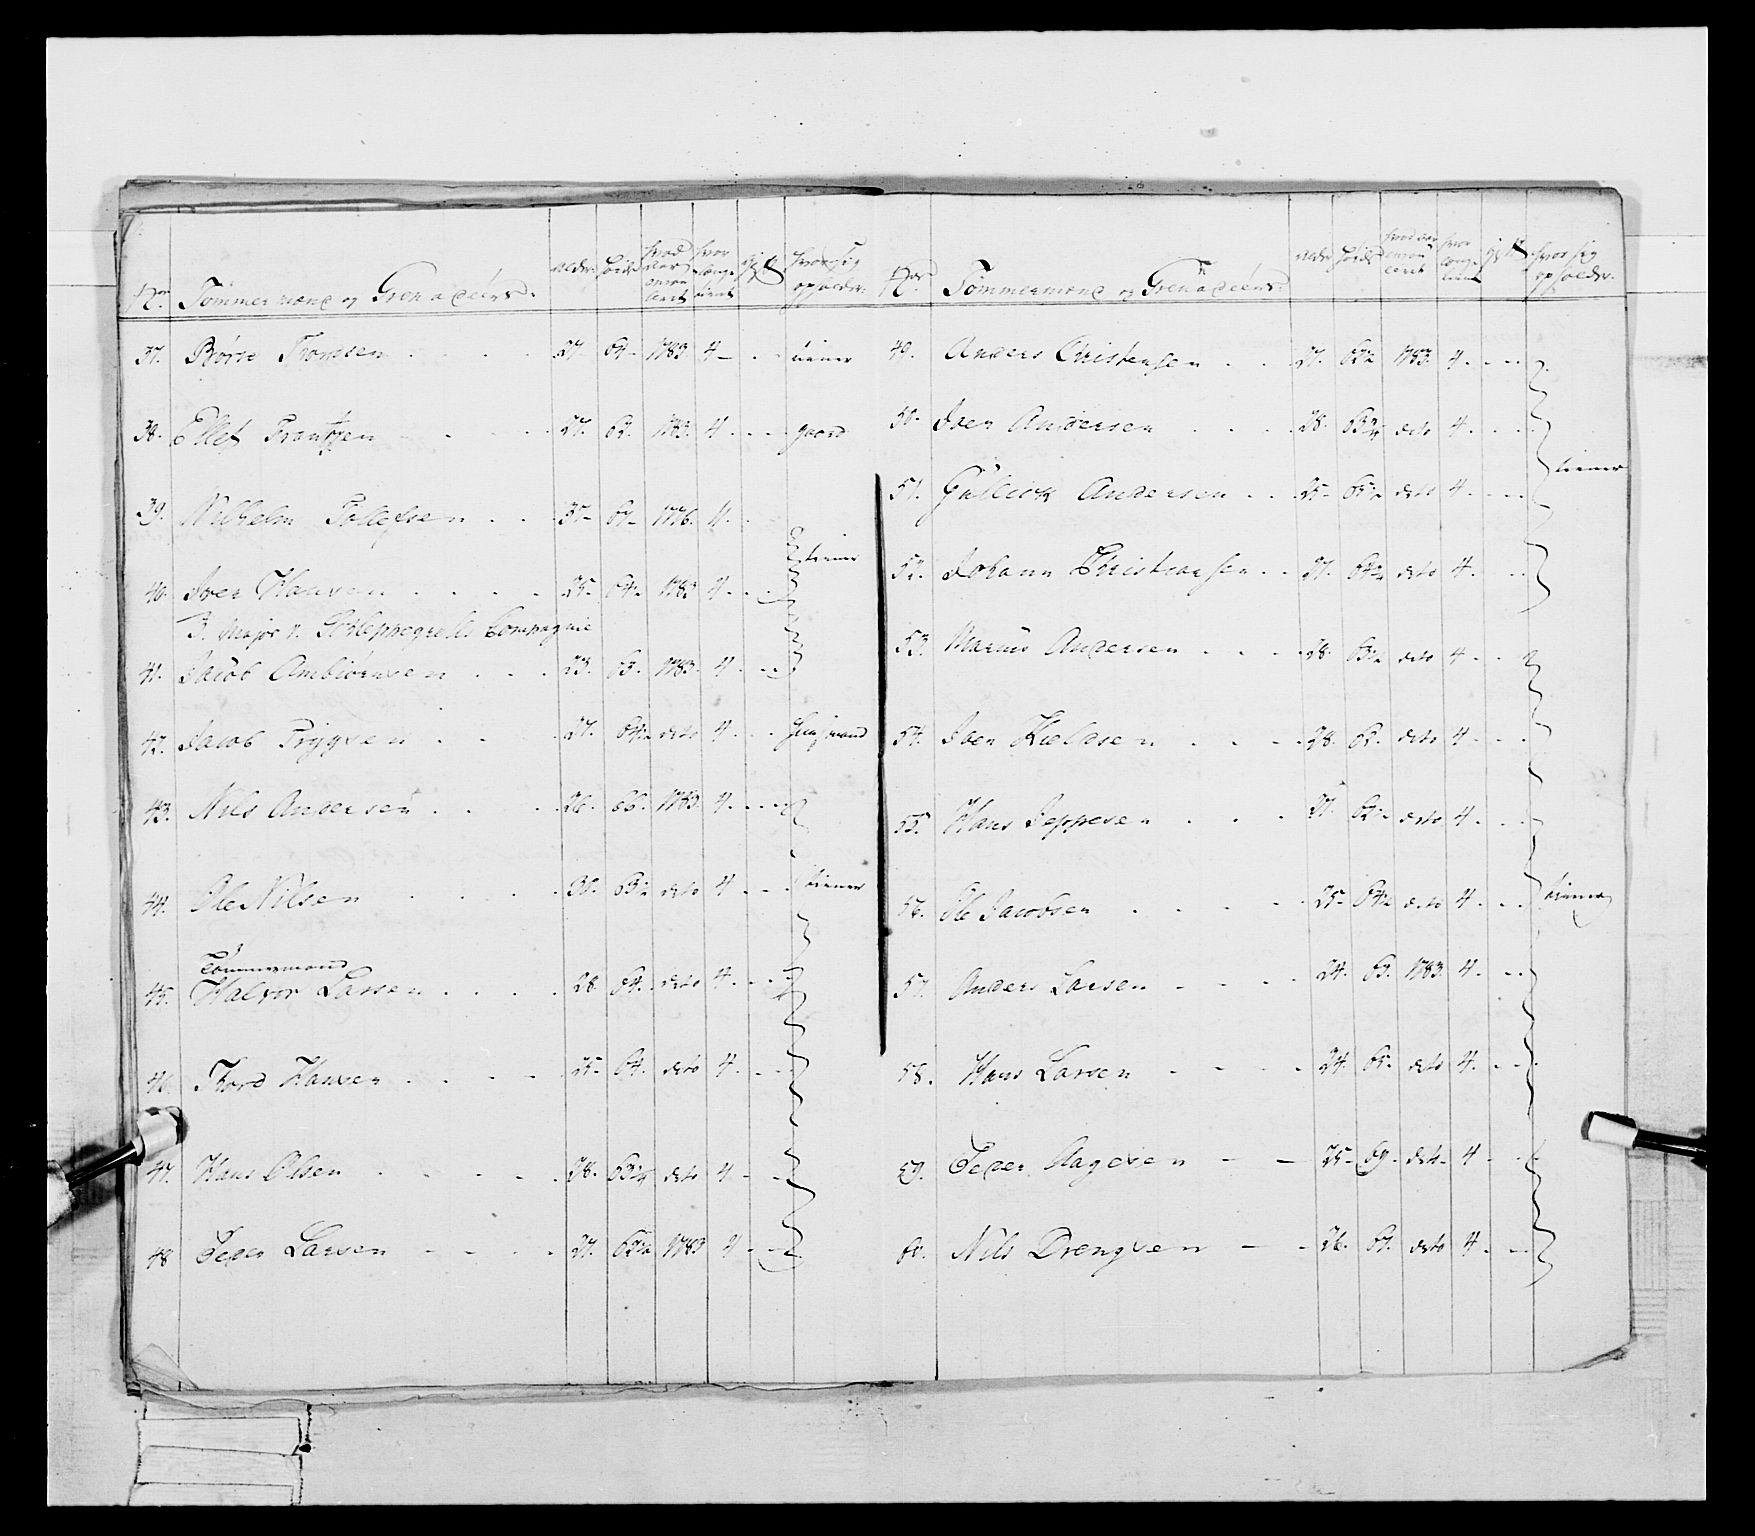 No. Tømmermænd og Grenadéérs. alder. høide hvad aar enrolleret hvor længe tient gift hvor sig opholder.
37. Børre Tromsen 27. 64 1783 4 tiener
38. Ellef Frantzen 27. 62. 1783. 4 gaard
39. Wilhelm Tollefsen 35 1776. 4
tiener
40. Iver Hansen 25. 64 1783 4
3. Major v. Schleppegrells Compagnie
41. Jacob Ambiørnsen 23. 63. 1783. 4
42. Jacob Trygsen 27. 64 deto 4 huusmand
43. Nils Andersen 26. 66. 1783. 4
44. Ole Nilsen 30. 63 deto 4 tiener
Tømmermand
45. Halvor Larsen 28 64. deto 4
46. Thord Hansen 25. 64. deto 4
47. Hans Olsen 28. 63 deto 4
48 Peder Larsen 27. 62 1783 4
No. Tømmermænd og Grenadéérs. alder høide hvad aar enrolleret hvor længe tient gift hvor sig opholder.
49. Anders Christensen 27. 62 1783. 4
50. Iver Andersen 28. 63 deto 4
tiener
51. Gullick Andersen 25 65 deto 4
52. Johann Christiansen 27. 64 deto 4
53. Marius Andersen 28. 63 deto 4
54. Iver Kieldsen 28. 62. deto 4
55. Hans Jeppesen 27. 62 deto 4
56. Ole Jacobsen 25 64 deto 4 tiener
57. Anders Larsen 24. 63. 1783. 4
58. Hans Larsen 24. 65. deto 4
59. Peder Aagesen 25 69 det 4
60. Nils Drengsen 26. deto 4